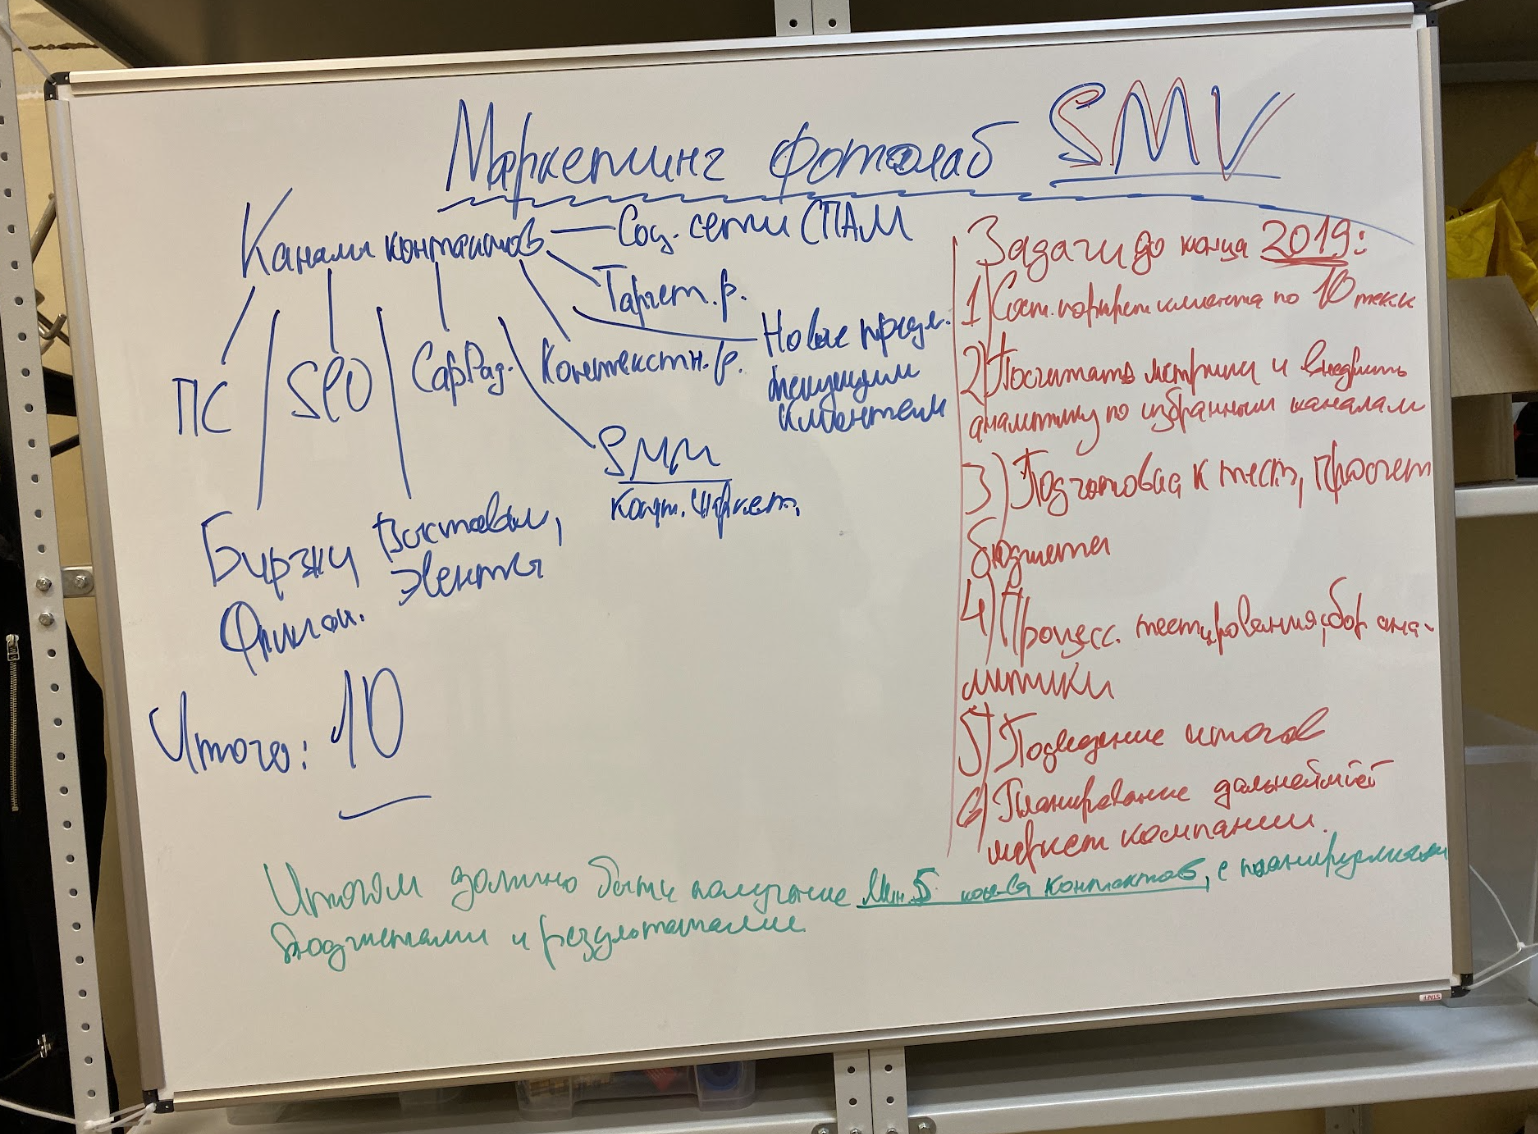 Маркетинг фотолаб SMV
Каналы контактов
Соц. сети СПАМ
Таргет. р.
Новые предл.
текущим
клиентам
ПС
SEO
СарРад.
Контекстн. р.
SMM
контент. маркет.
Биржи
Фриланс.
Выставки,
Эвенты
Итого: 10
Задачи до конца 2019:
1) Сост. портрет клиента по 10
2) Посчитать метрики и внедрить
аналитику по избранным каналам
3) Подготовка к тест, просчет
бюджета
4) Процесс. тестирования, сбор ана-
литики
5) Подведение итогов
6) Планирование дальнейшей
маркет компании.
Итогом должно быть получение Мин. 5 контактов, с планируемыми
бюджетами и результатами.